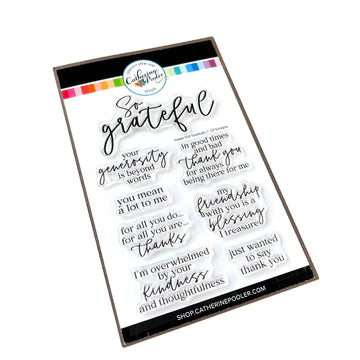 Catherine Pooler
So
grateful
your
generosity
is beyond
words
in good times
and bad
thank you
for always
being there for me
you mean
a lot to me
my
friendship
with you is a
blessing
I treasure
for all you do...
for all you are...
thanks
I'm overwhelmed
by your
kindness
and thoughtfulness
just wanted
to say
thank you
SHOP.CATHERINEPOOLER.COM